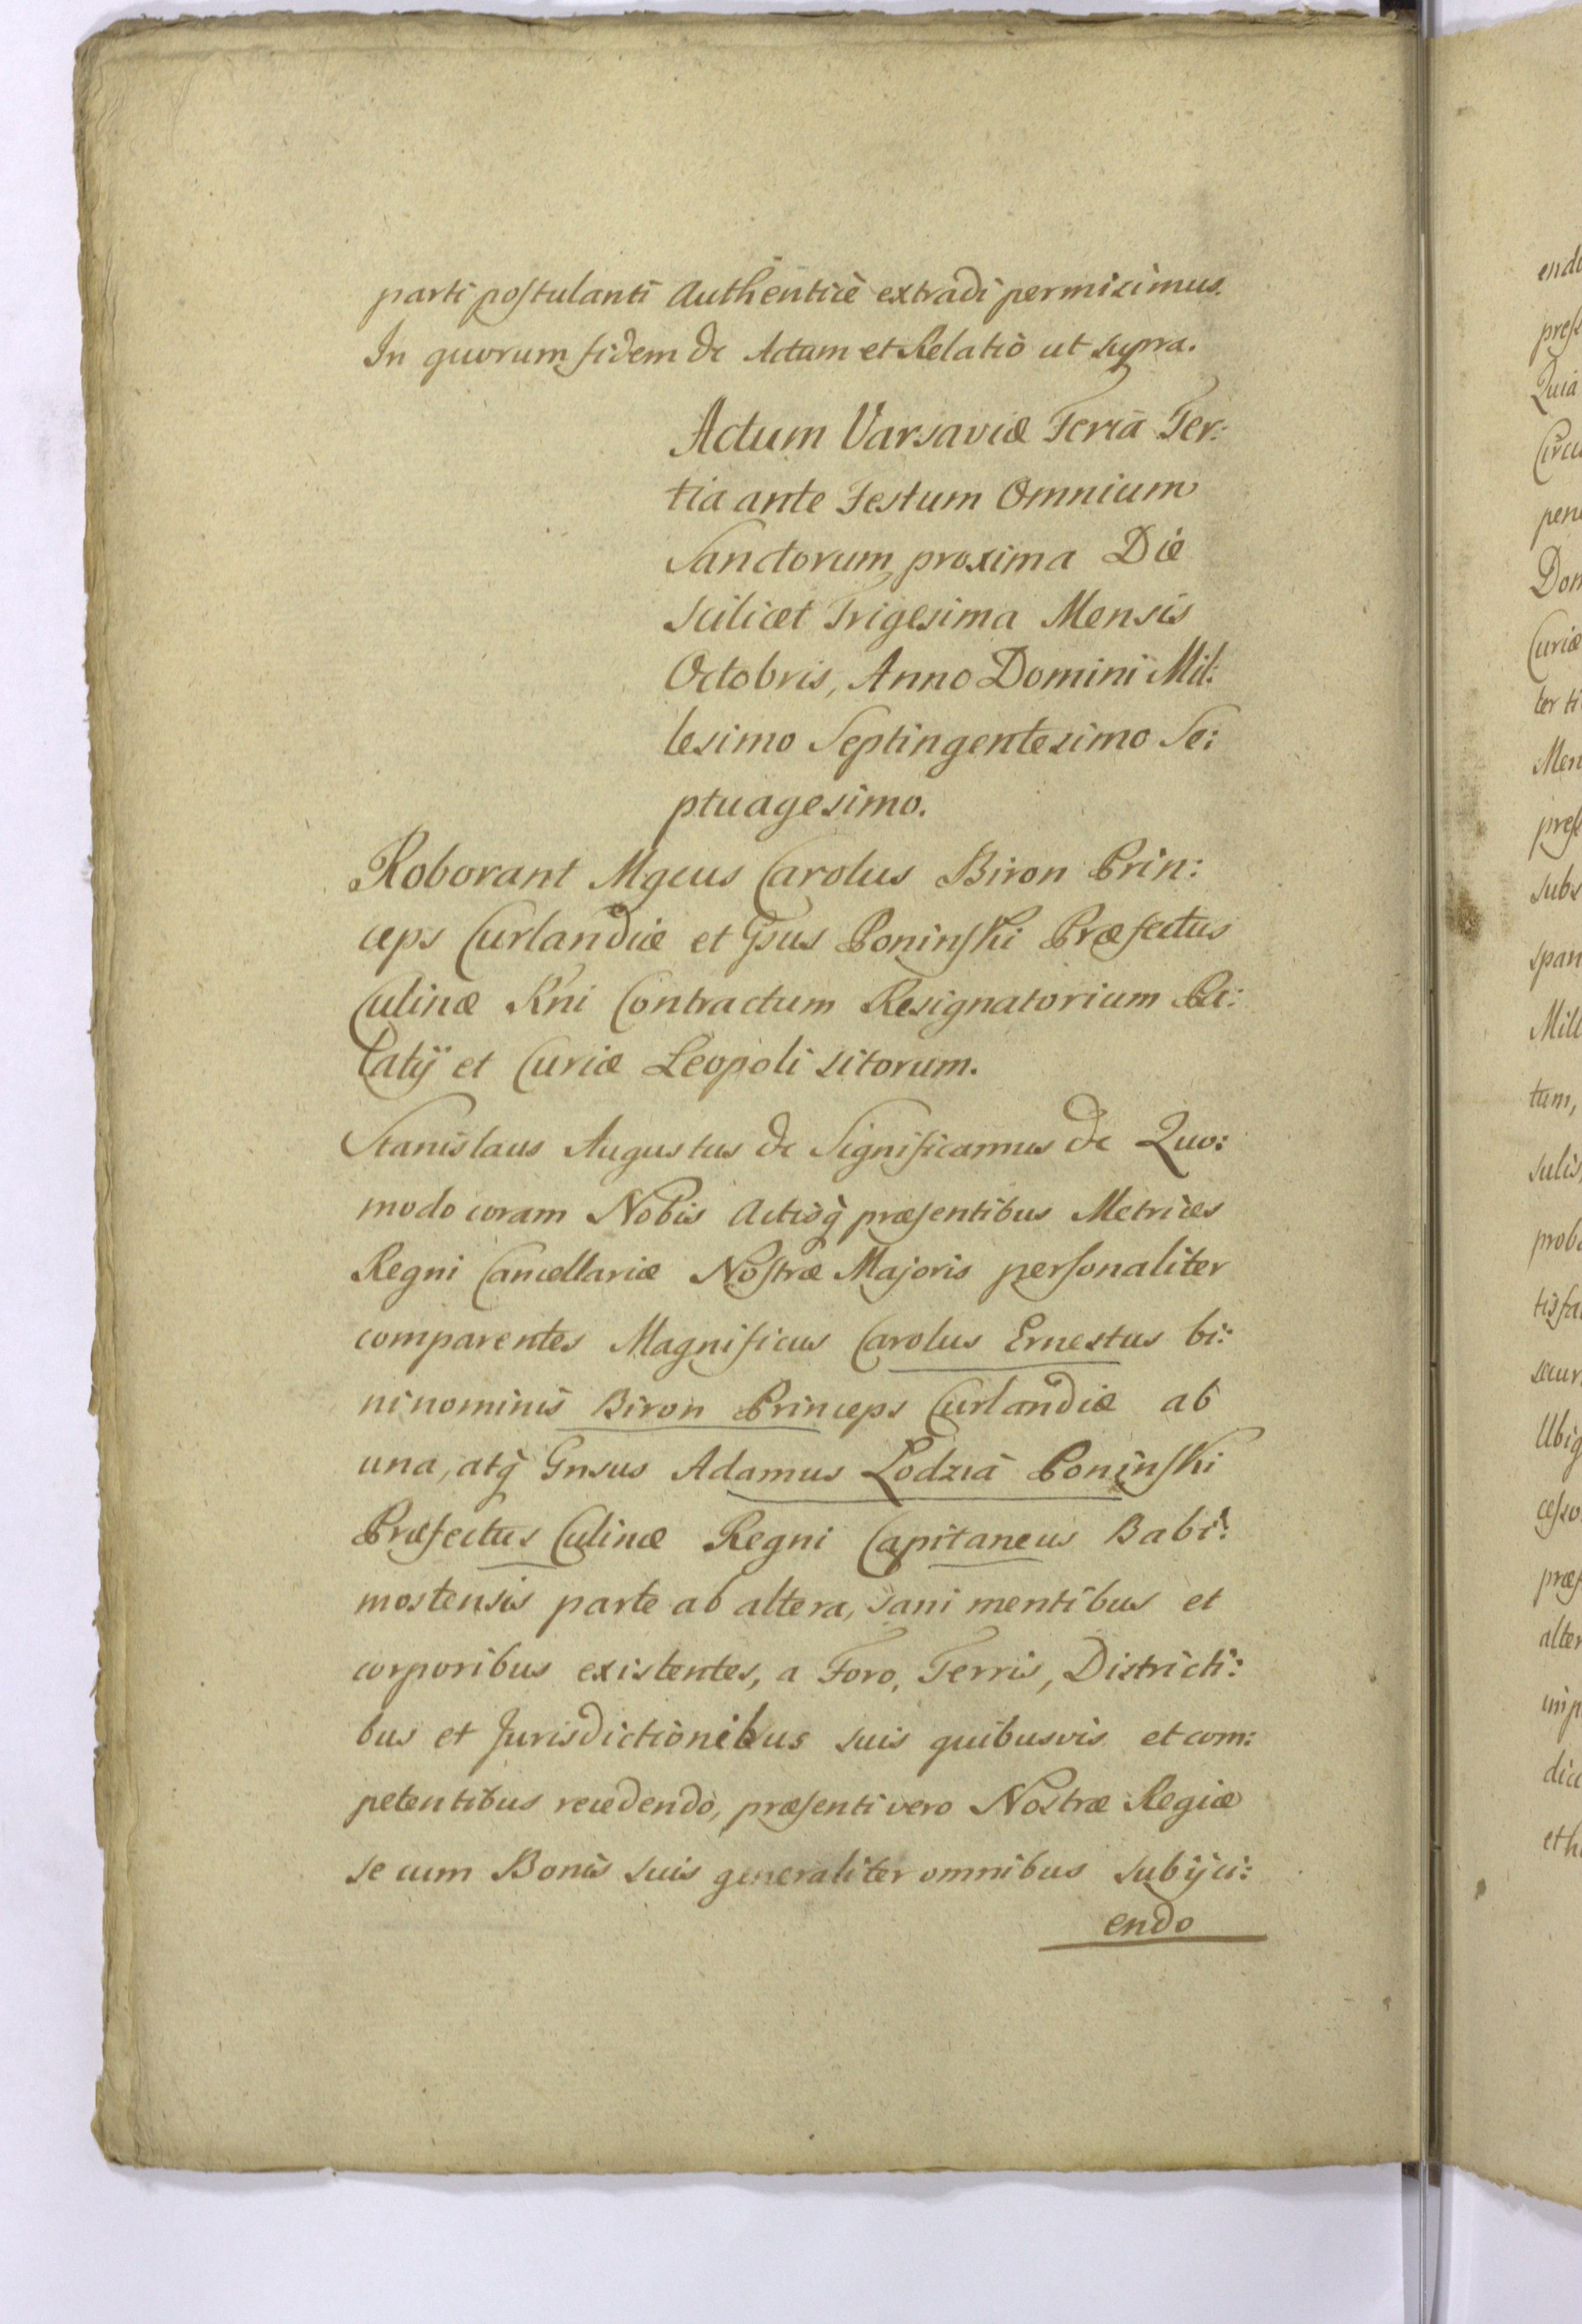 parti postulanti Authentice extradi permisimus.
In quorum fidem &c Actum et Relatio ut supra.
Actum Varsaviæ Feria Ter:
tia ante Festum Omnium
Sanctorum proxima Die
scilicet Trigesima Mensis
Octobris, Anno Domini Mil:
lesimo Septingentesimo Se:
ptuagesimo.
Roborant Mgcus Carolus Biron Prin:
ceps Curlandiæ et Gsus Poninski Præfectus
Culinæ Rni Contractum Resignatorium Pa:
latij et Curiæ Leopoli sitorum.
Stanislaus Augustus &c Significamus &c Quo:
modo coram Nobis Actisq præsentibus Metrices
Regni Cancellariæ Nostræ Majoris personaliter
comparentes Magnificus Carolus Ernestus bi:
ni nominis Biron Princeps Curlandiæ ab
una, atq Gnsus Adamus Lodzia Poninski
Præfectus Culinæ Regni Capitaneus Babi:
mostensis parte ab altera, sani mentibus et
corporibus existentes, a Foro, Terris, Districti:
bus et Jurisdictionibus suis quibusvis et com:
petentibus recedendo, præsenti vero Nostræ Regiæ
se cum Bonis suis generaliter omnibus subijci:
endo
endo
Quia
pen
Curiæ
ter ti
Men
subs
span
Mill
tum,
sulis,
proba
tisfa
secur
Ubiq
præs
alter
imp
et h